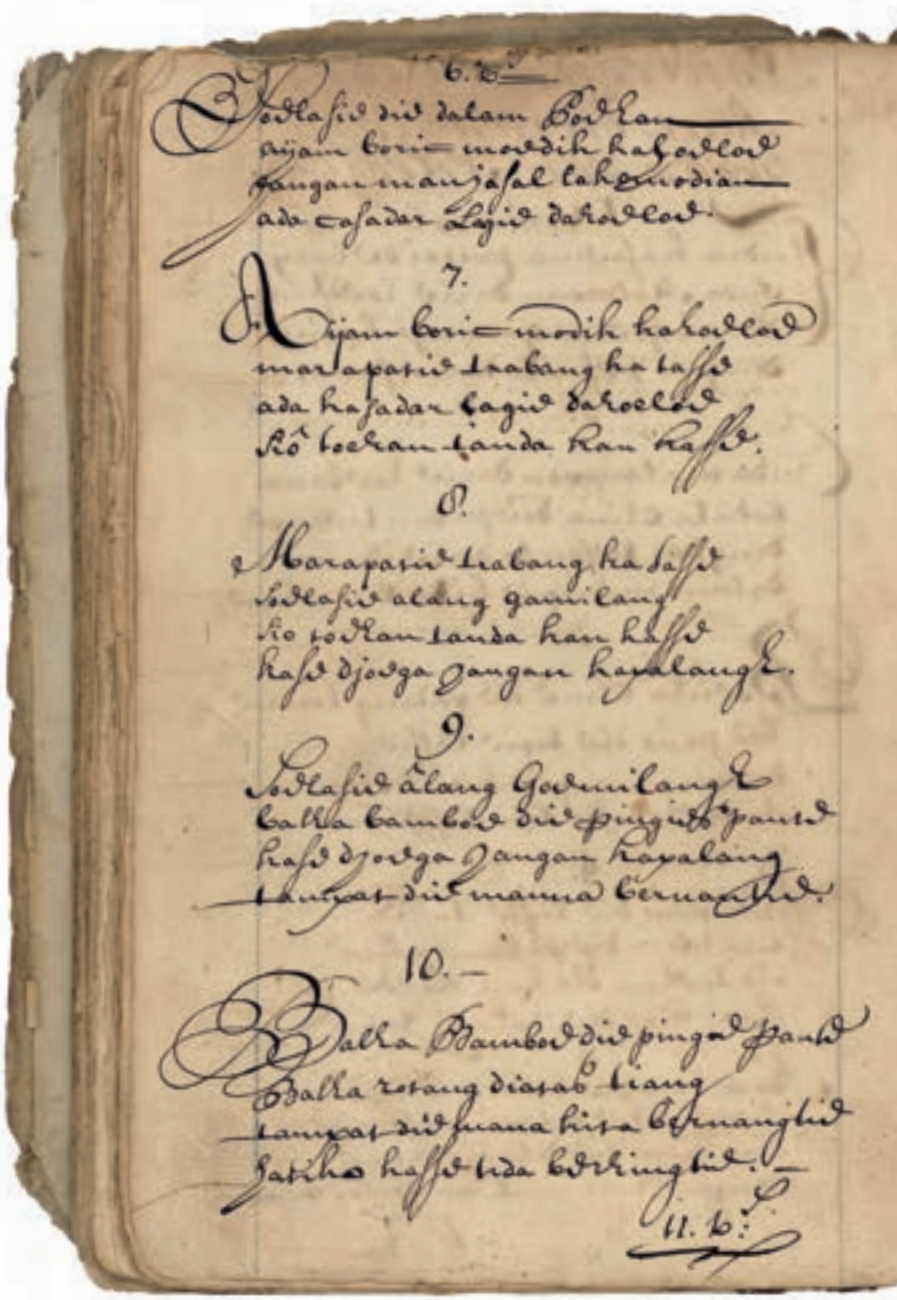 6. v.s
Soelasie die dalam Boekan
aijam boric moedik kahoeloe
jangan manjasal lakemodian
ada casadar Lagie dahoeloe.
7.
Aijam boric modik kahoeloe
marapatie trabang ka tasse
ada kasadar lagie dahoeloe
toekan tanda kan kasse.
8.
Marapatie trabang ka tasse
soelasie alang gamilang
toekan tanda kan kasse
kase djoega Jangan kapalangh.
9.
Soelasie âlang Goemilangh
balka bamboe die pingier pante
kase djoega Jangan kapalang
tampat die manna bernantie.
10.
Balka Bamboe die pingier pante
Balka rotang diatas tiang
tampat die mana kita bernangtie
kasse tida
11. v.s